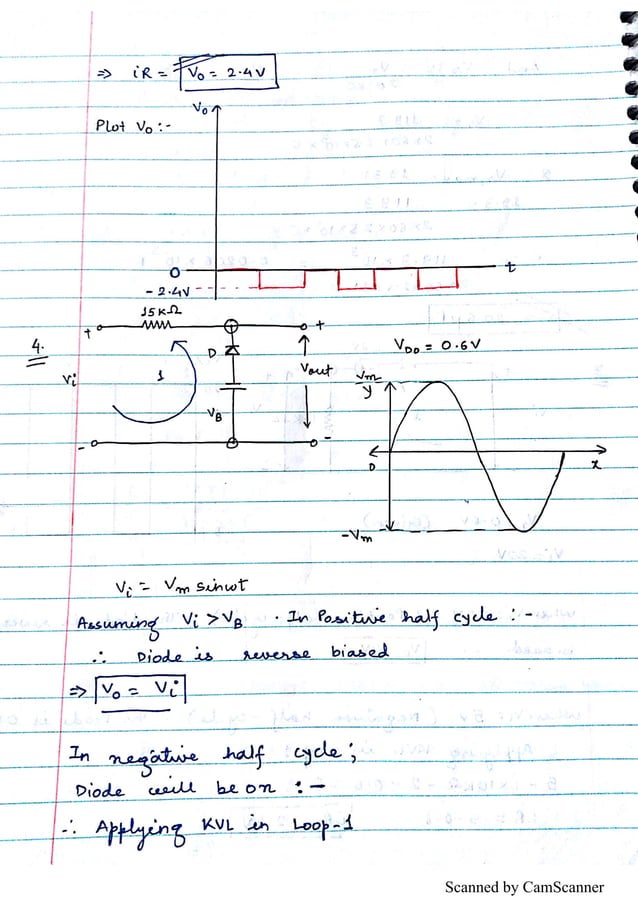 ⇒ iR = V₀ = 2.4V
Plot V₀ :-
V₀
0
t
-2.4V
4.
15KΩ
+
+
D
Vi
1
Vout
V_B
-
-
V_D0 = 0.6V
Vm
y
0
x
-Vm
Vi = Vm sinwt
Assuming Vi > V_B . In Positive half cycle :-
∴ Diode is reverse biased
⇒ V₀ = Vi
In negative half cycle ;
Diode will be on :-
∴ Applying KVL in Loop-1
Scanned by CamScanner